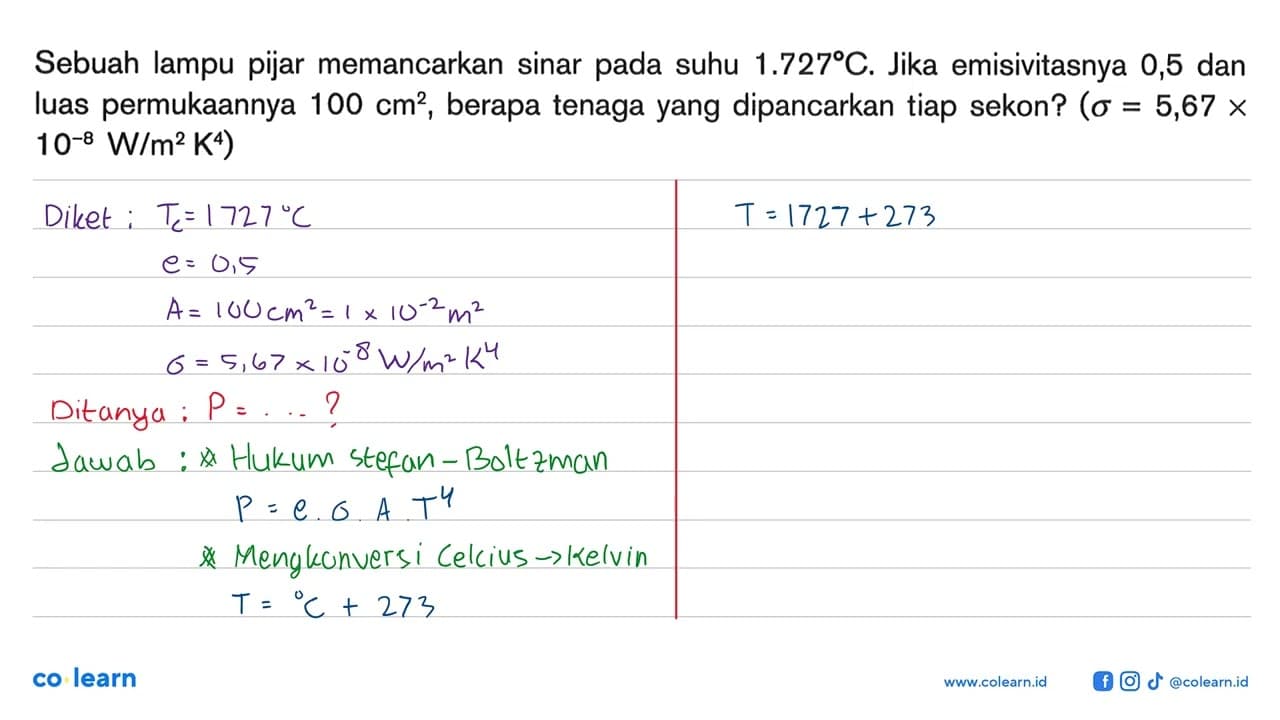 Sebuah lampu pijar memancarkan sinar pada suhu 1.727°C. Jika emisivitasnya 0,5 dan
luas permukaannya 100 cm², berapa tenaga yang dipancarkan tiap sekon? (σ = 5,67 ×
10⁻⁸ W/m² K⁴)
Diket : Tc = 1727 °C
e = 0,5
A = 100 cm² = 1 × 10⁻² m²
σ = 5,67 × 10⁻⁸ W/m² K⁴
Ditanya : P = . . . ?
Jawab : * Hukum Stefan - Boltzman
P = e . σ . A . T⁴
* Mengkonversi Celcius → Kelvin
T = °C + 273
T = 1727 + 273
co learn
www.colearn.id
@colearn.id